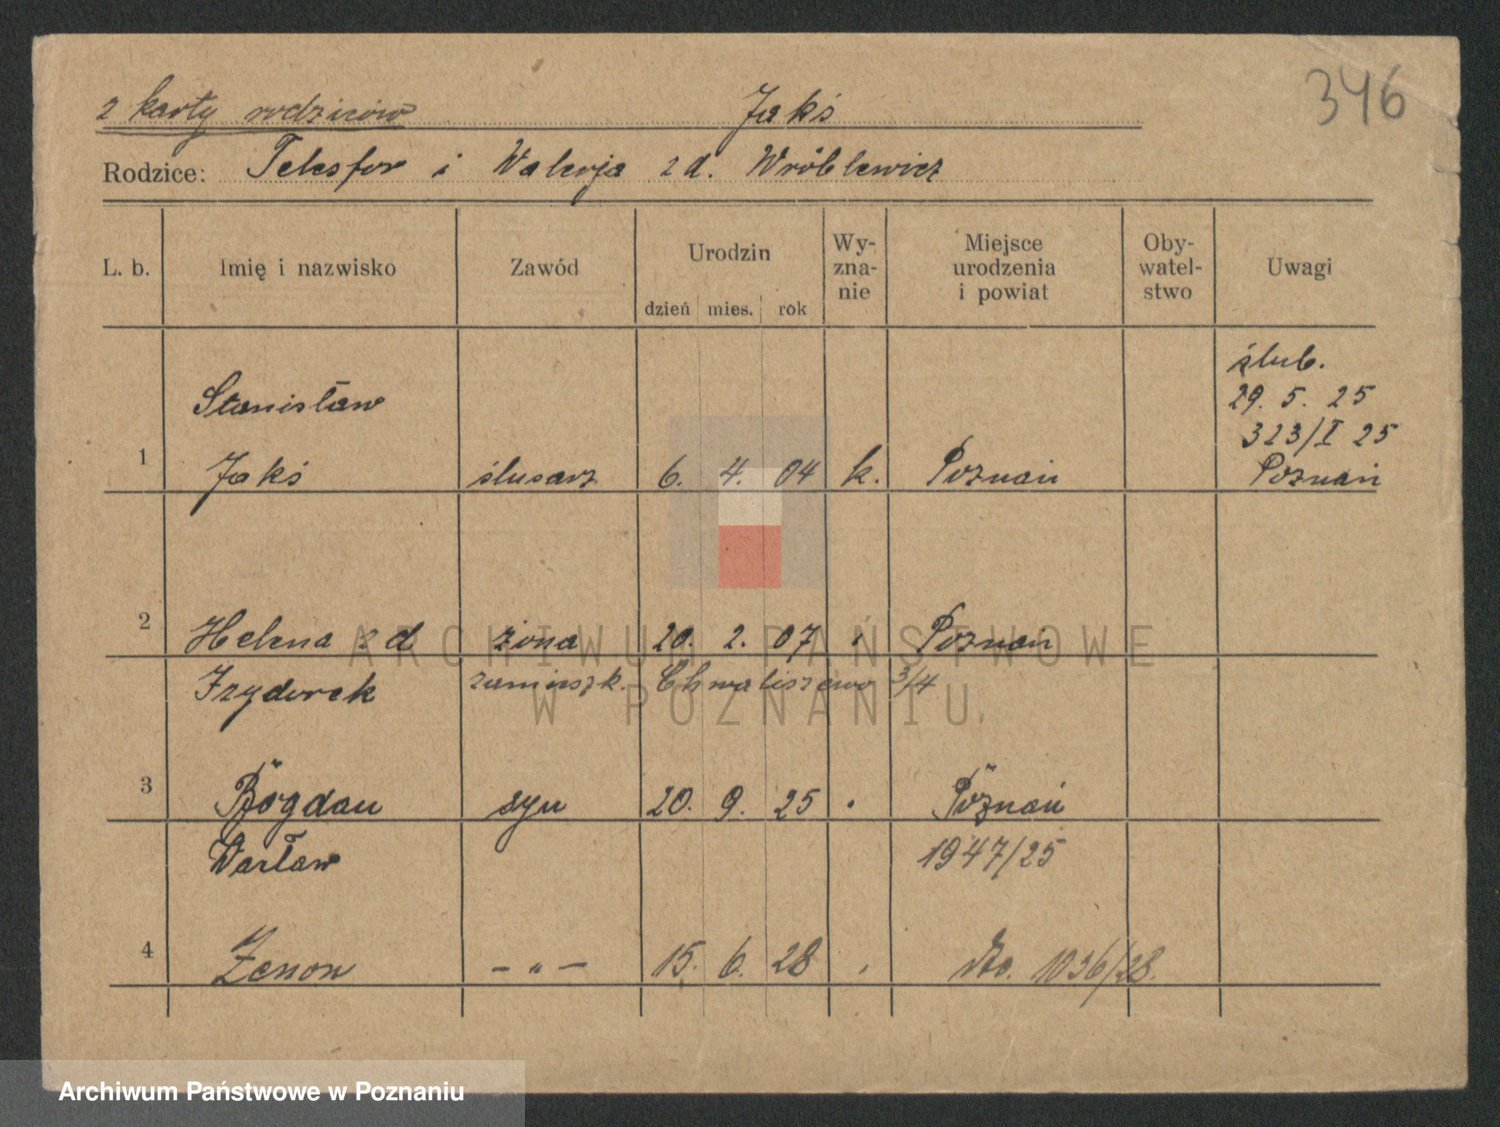 346
z karty rodziców Jakś
Rodzice: Telesfor i Walerja z d. Wróblewicz
L. b. Imię i nazwisko Zawód Urodzin dzień mies. rok Wy-zna-nie Miejsce urodzenia i powiat Oby-watel-stwo Uwagi
ślub.
Stanisław 29. 5. 25
323/I 25
1 Jakś ślusarz 6. 4. 04 k. Poznań Poznań
2 Helena z d żona 20. 2. 07 " Poznań
Fryderek zamieszk. Chwaliszewo 3/4
3 Bogdan syn 20. 9. 25 " Poznań
Wacław 1947/25
4 Zenon — " — 15. 6. 28 " dto. 1036/28.
ARCHIWUM PAŃSTWOWE
W POZNANIU
Archiwum Państwowe w Poznaniu